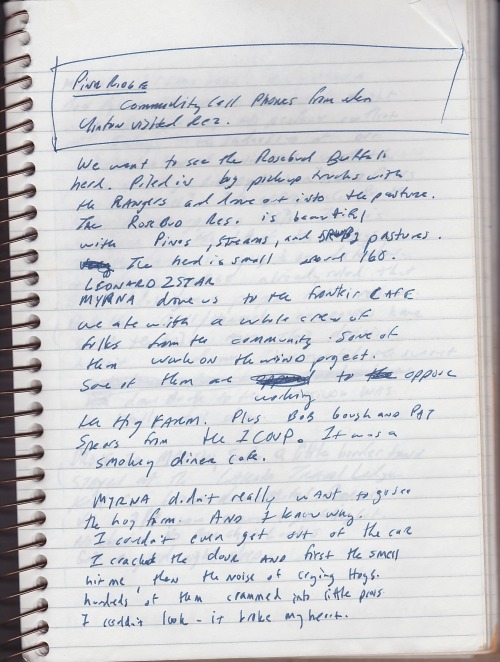 Pine Ridge
Commodity Cell Phones from when
Clinton visited Rez.
We went to see the Rosebud Buffalo
herd. Piled in big pickup trucks with
the Rangers and drove out into the pasture.
The RoseBud Res. is beautiful
with Pines, Streams, and pastures.
The herd is small around 160.
LEONARD 2STAR
MYRNA drove us to the CAFE
we ate with a whole crew of
folks from the community. Some of
them work on the WIND project.
Some of them are working to oppose
the Hog FARM. Plus BOB Gough AND PAT
Spears from the ICOUP. It was a
smokey diner cafe.
MYRNA didn't really want to go see
the hog farm. AND I know why.
I couldn't even get out of the car
I cracked the door AND first the smell
hit me, then the noise of crying Hogs.
hundreds of them crammed into little pens
I couldn't look - it broke my heart.